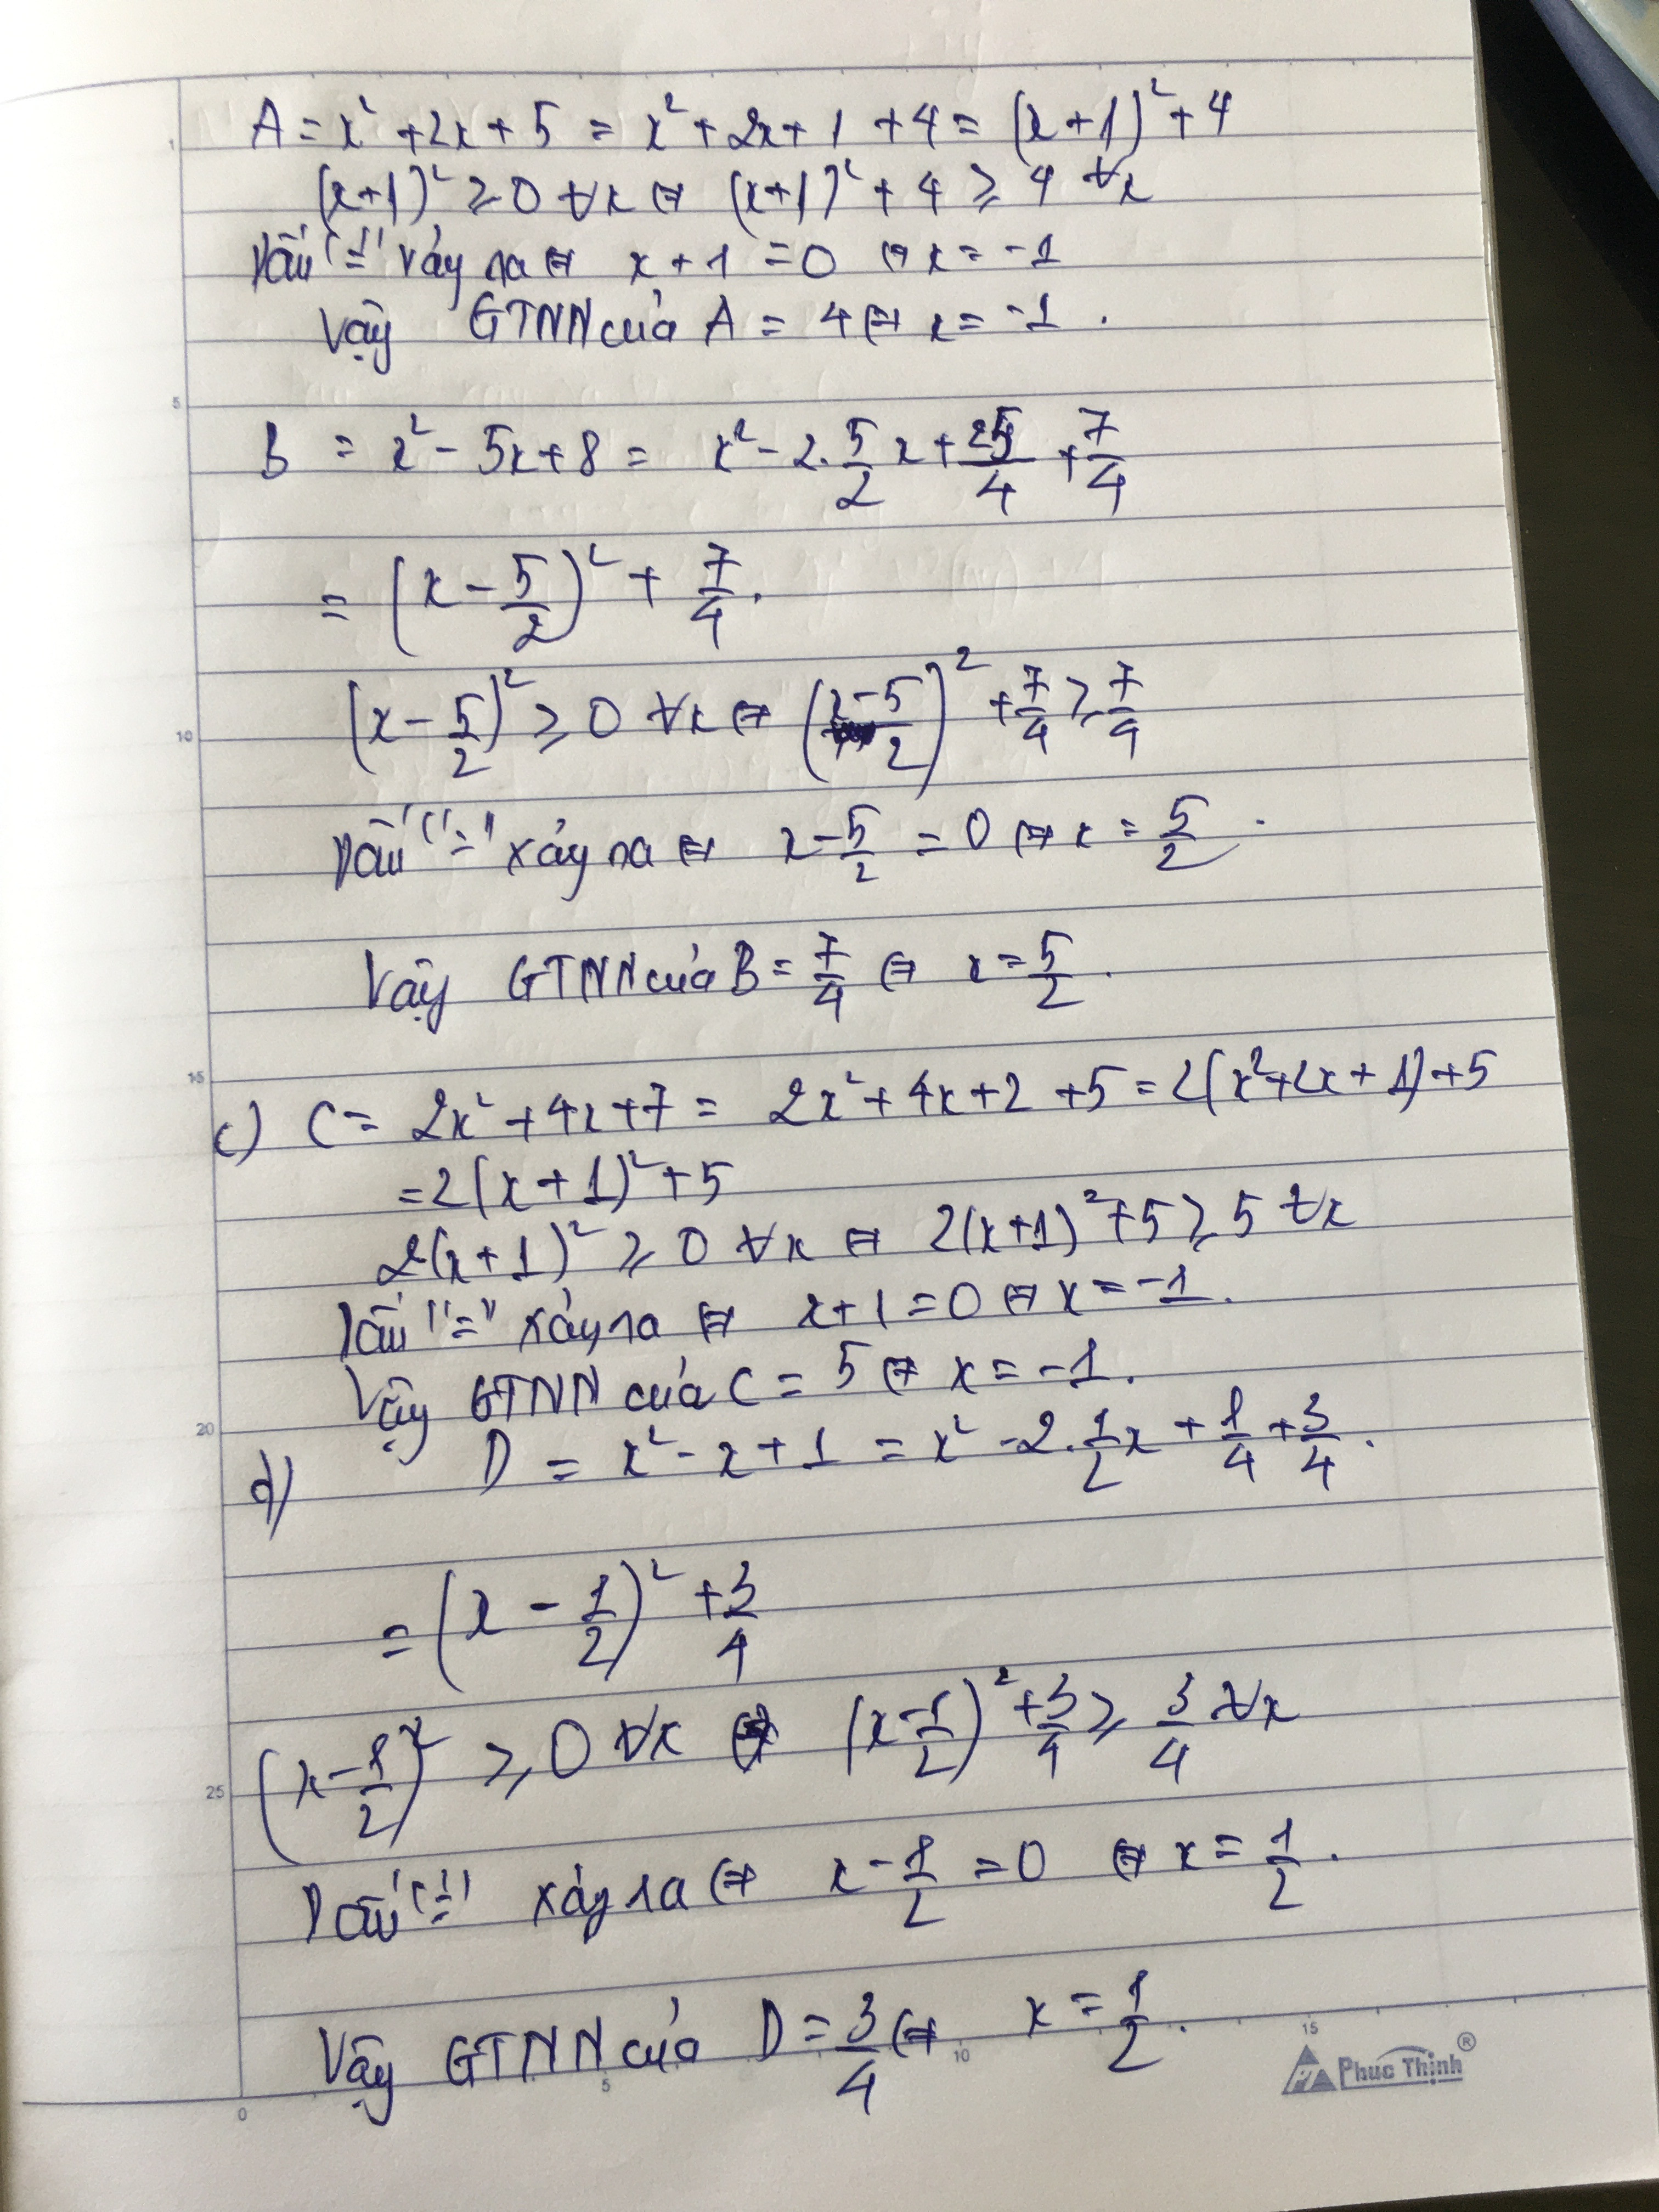 A = x² + 2x + 5 = x² + 2x + 1 + 4 = (x+1)² + 4
(x+1)² ≥ 0 ∀x ⇔ (x+1)² + 4 ≥ 4 ∀x
Dấu "=" xảy ra ⇔ x + 1 = 0 ⇔ x = -1
Vậy GTNN của A = 4 ⇔ x = -1 .
B = x² - 5x + 8 = x² - 2. 5/2 x + 25/4 + 7/4
= (x - 5/2)² + 7/4 .
(x - 5/2)² ≥ 0 ∀x ⇔ (x-5/2)² + 7/4 ≥ 7/4
Dấu "=" xảy ra ⇔ x - 5/2 = 0 ⇔ x = 5/2 .
Vậy GTNN của B = 7/4 ⇔ x = 5/2 .
c) C = 2x² + 4x + 7 = 2x² + 4x + 2 + 5 = 2(x² + 2x + 1) + 5
= 2(x + 1)² + 5
2(x + 1)² ≥ 0 ∀x ⇔ 2(x+1)² + 5 ≥ 5 ∀x
Dấu "=" xảy ra ⇔ x + 1 = 0 ⇔ x = -1 .
Vậy GTNN của C = 5 ⇔ x = -1 .
d) D = x² - x + 1 = x² - 2. 1/2 x + 1/4 + 3/4 .
= (x - 1/2)² + 3/4
(x - 1/2)² ≥ 0 ∀x ⇔ (x - 1/2)² + 3/4 ≥ 3/4 ∀x
Dấu "=" xảy ra ⇔ x - 1/2 = 0 ⇔ x = 1/2 .
Vậy GTNN của D = 3/4 ⇔ x = 1/2 .
1
5
10
15
20
25
0
5
10
15
Phuc Thịnh®